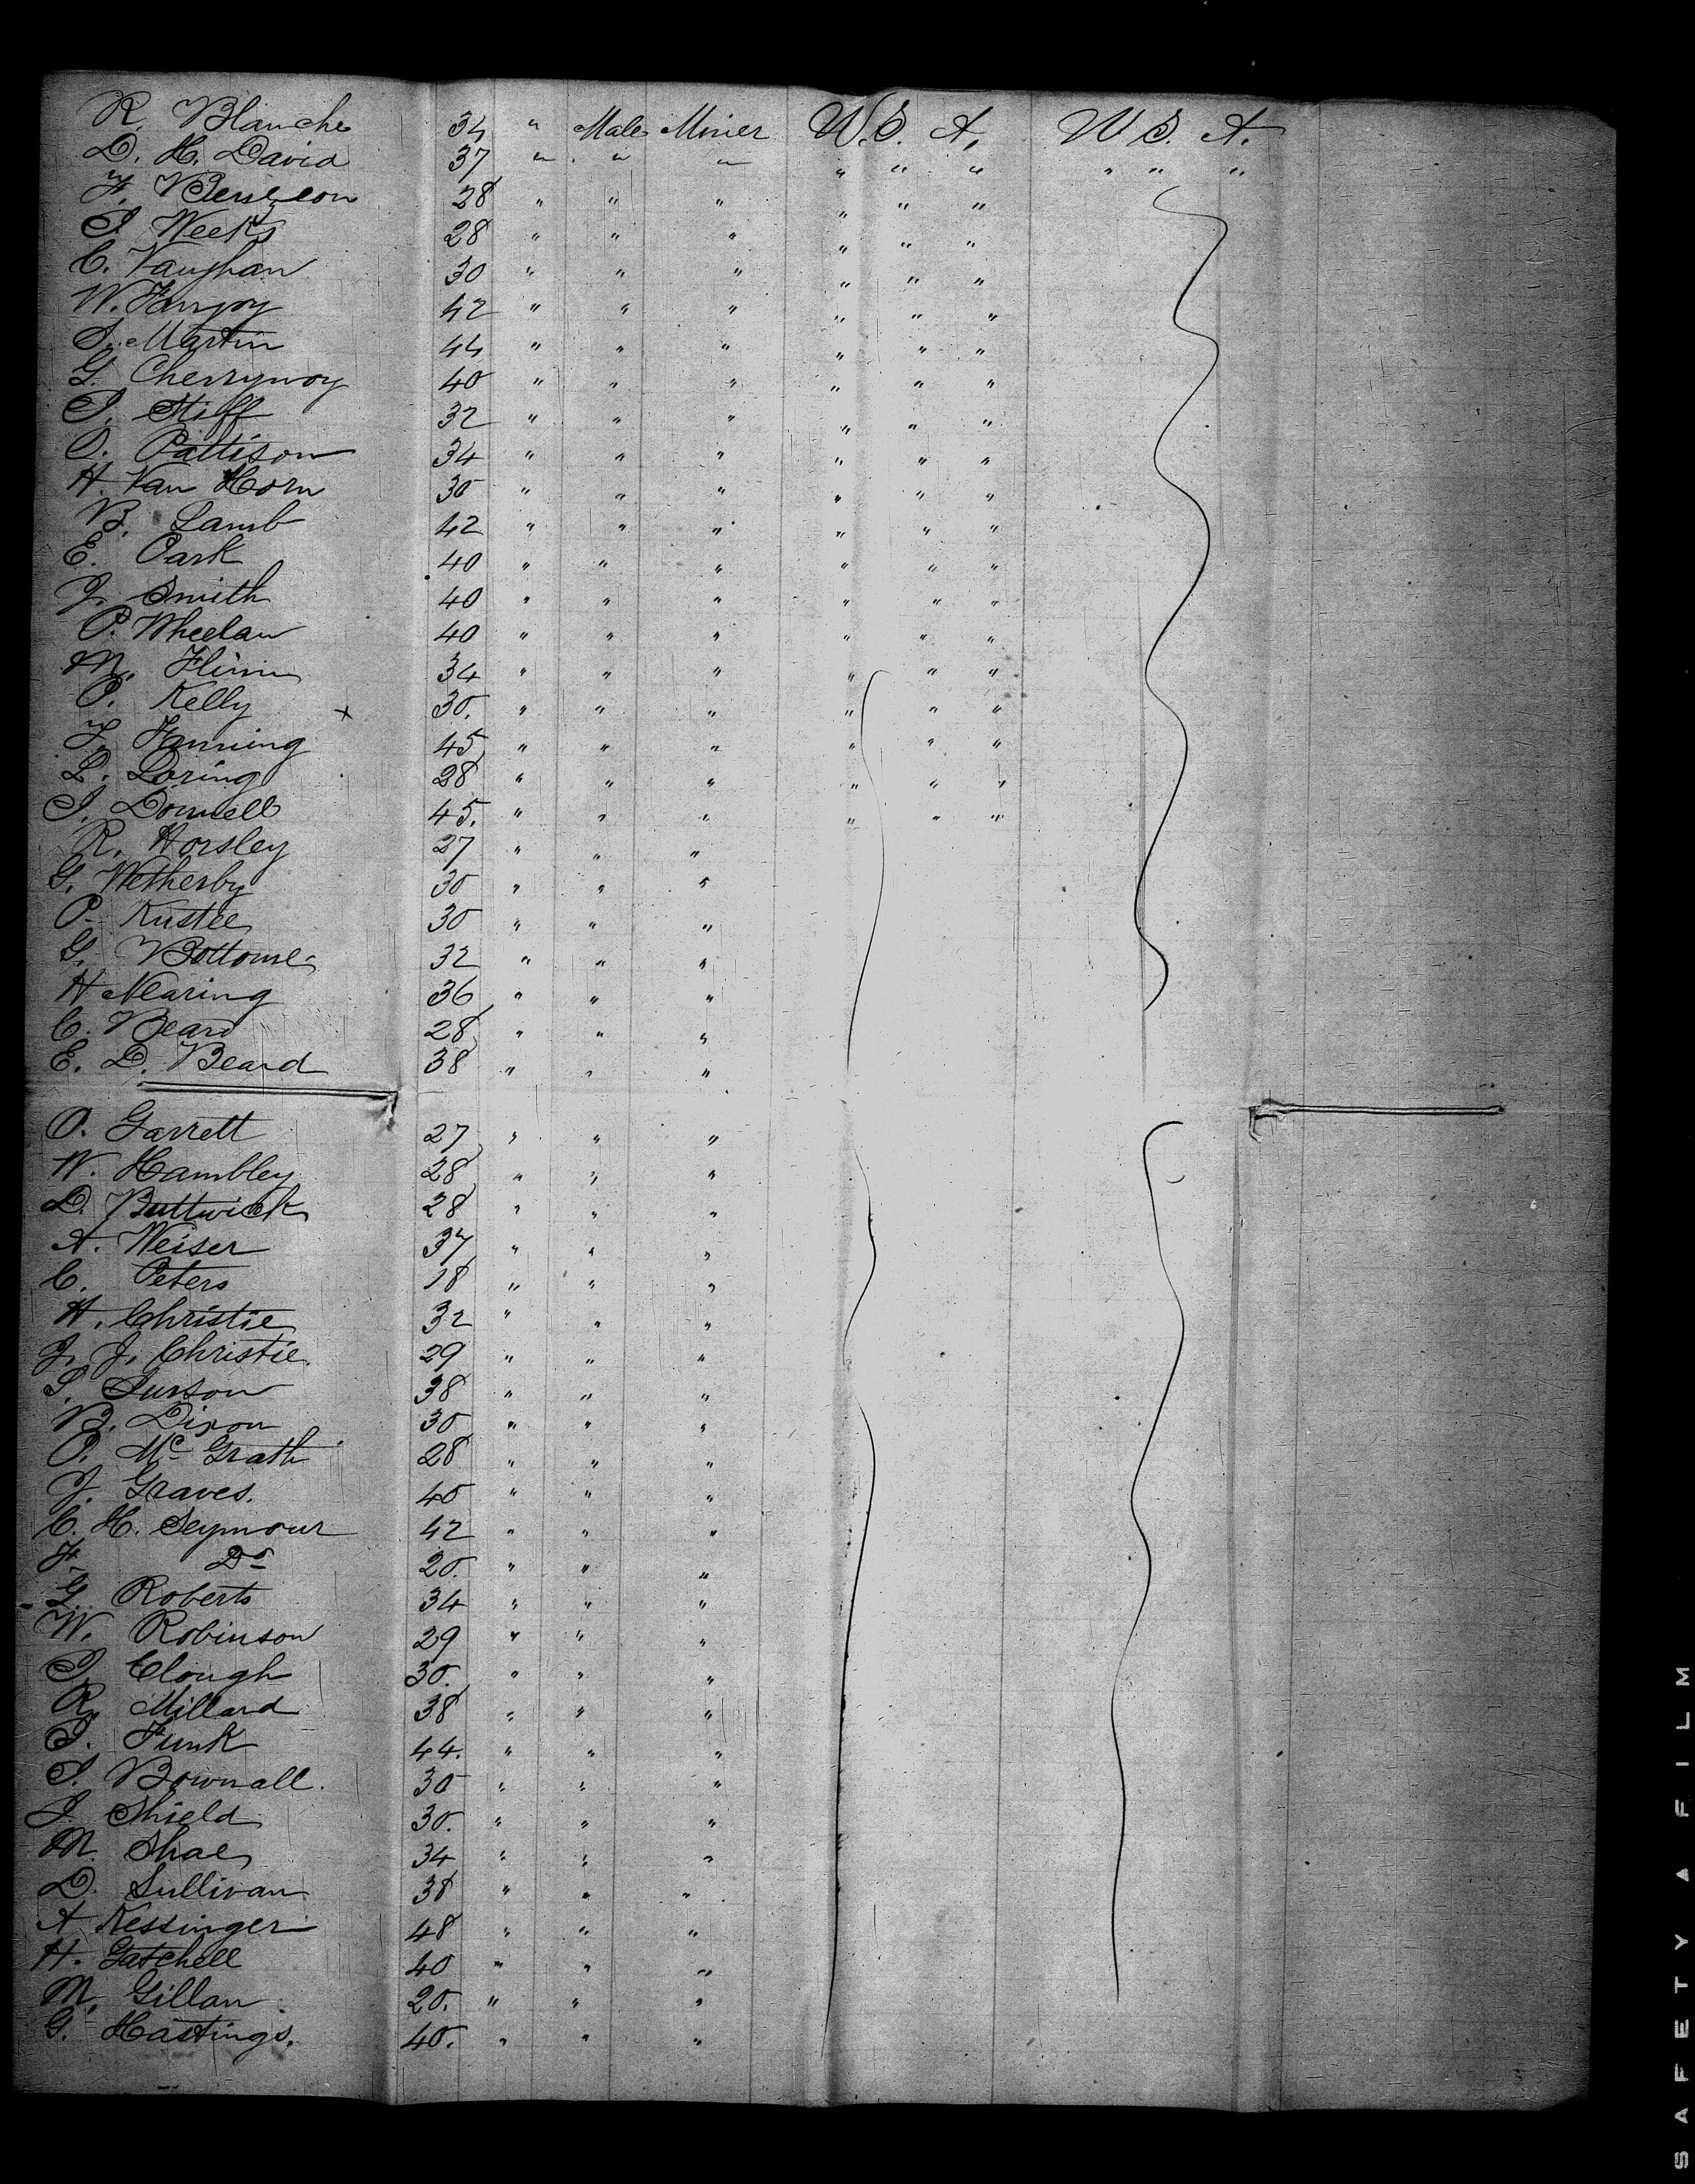 R. Blanche 34 " Male Miner U.S. A. U S. A.
D. H. David 37 " " " " " " " " "
F. 28 " " " " " "
S. Weeks 28 " " " " " "
C. Vaughan 30 " " " " " "
W. 42 " " " " " "
S. Martin 44 " " " " " "
G. Cherrywoy 40 " " " " " "
S. Stiff 32 " " " " " "
O. Pattison 34 " " " " " "
H. Van Horn 30 " " " " " "
B. Lamb 42 " " " " " "
E. Park 40 " " " " " "
J. Smith 40 " " " " " "
P. Wheelan 40 " " " " " "
M. Flinn 34 " " " " " "
P. Kelly x 30. " " " " " "
F. Fanning 45 " " " " " "
L. Loring 28 " " " " " "
J. Donnell 45. " " " " " "
R. Horsley 27 " " "
G. Wetherby 30 " " "
P. Kustee 30 " " "
G. Bottome 32 " " "
H Nearing 36 " " "
C. Beard 28 " " "
E. D. Beard 38 " " "
O. Garrett 27 " " "
W. Hambley 28 " " "
D. Buttwick 28 " " "
A. Weiser 37 " " "
C. Peters 18 " " "
H. Christie 32 " " "
J. J. Christie. 29 " " "
S. Surson 38 " " "
B. Dixon 30 " " "
P. Mc Grath 28 " " "
J. Graves. 40 " " "
C. H. Seymour 42 " " "
F. Do 20. " " "
G. Roberts 34 " " "
W. Robinson 29 " " "
J. Clough 30. " " "
R. Millard 38 " " "
S. Funk 44. " " "
S. Bownall. 30 " " "
J. Shield 30. " " "
M. Shae 34 " " "
D. Sullivan 38 " " "
A Kessinger 48 " " "
H. Gatchell 40 " " "
M. Gillan 20. " " "
G. Hastings. 40. " " "
SAFETY ▲ FILM